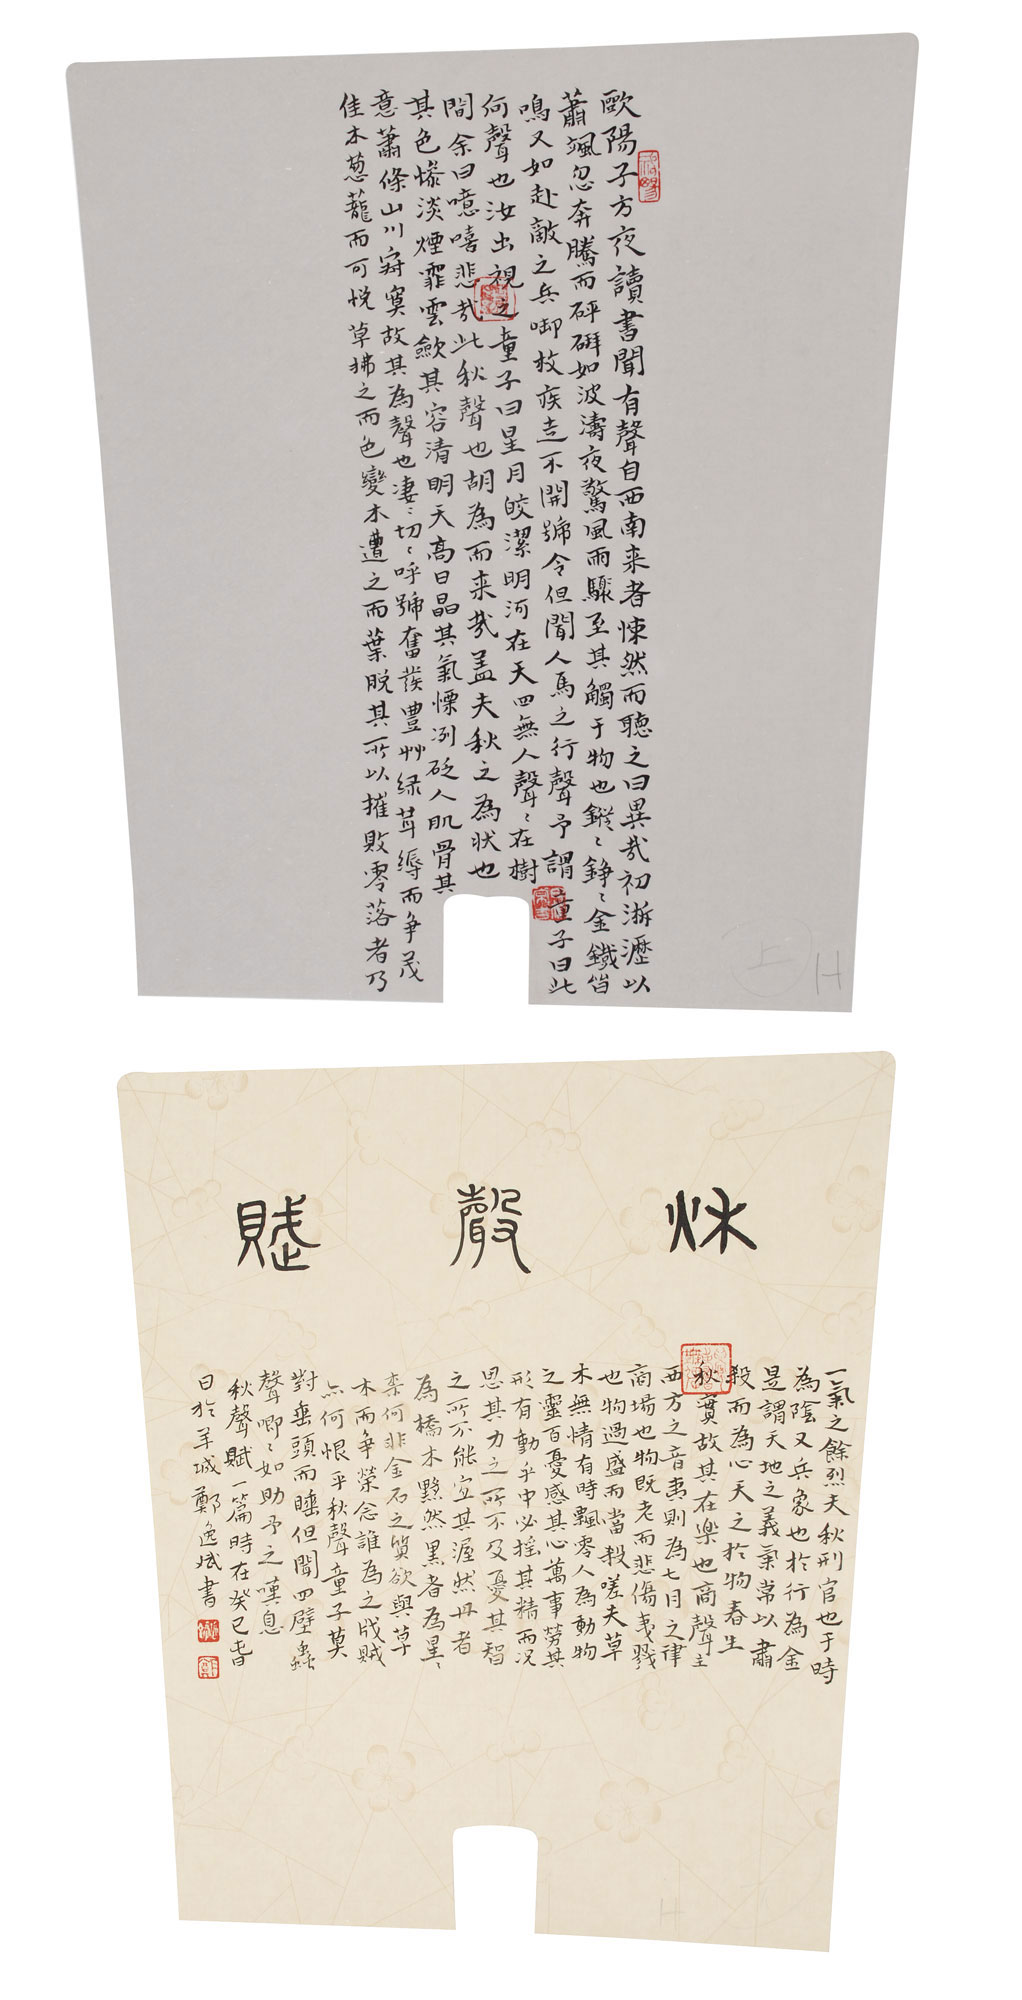 歐陽子方夜讀書聞有聲自西南来者悚然而聽之曰異哉初淅瀝以
蕭颯忽奔騰而砰硑如波濤夜驚風雨驟至其觸于物也鏦〻錚〻金鐵皆
鳴又如赴敵之兵啣枚疾走不聞號令但聞人馬之行聲予謂童子曰此
何聲也汝出視之童子曰星月皎潔明河在天四無人聲〻在樹
間余曰噫嘻悲哉此秋聲也胡為而来哉蓋夫秋之為状也
其色慘淡煙霏雲歛其容清明天高日晶其氣慄冽砭人肌骨其
意蕭條山川寂寞故其為聲也凄〻切〻呼號奮發豊艸绿茸縟而争茂
佳木葱蘢而可悦草拂之而色變木遭之而葉脱其所以摧敗零落者乃
秌聲賦
一氣之餘烈夫秋刑官也于時
為陰又兵象也於行為金
是謂天地之義氣常以肅
殺而為心天之於物春生
秋實故其在楽也商聲主
西方之音夷則為七月之律
商場也物既老而悲傷夷戮
也物過盛而當殺嗟夫草
木無情有時飄零人為動物
之靈百憂感其心萬事勞其
形有動乎中必摇其精而况
思其力之所不及憂其智
之所不能宜其渥然丹者
為槁木黟然黑者為星〻
柰何非金石之質欲與草
木而争榮念誰為之戕賊
亦何恨乎秋聲童子莫
對垂頭而睡但聞四壁蟲
聲唧〻如助予之嘆息
秋聲賦一篇時在癸巳春
日於羊城鄭逸斌書